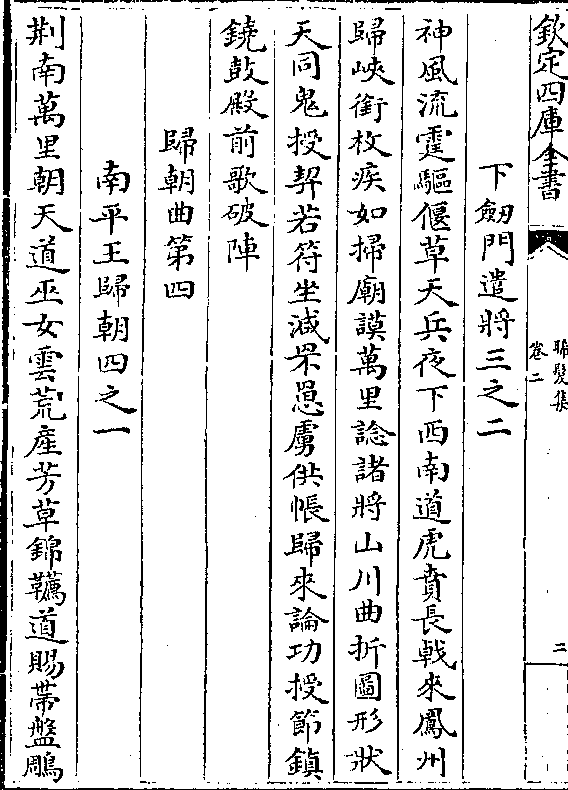 欽定四庫全書
晞髮集
卷二
二
下劒門遣將三之二
神風流霆驅偃草天兵夜下西南道虎賁長戟來鳳州
歸峽銜枚疾如掃廟謨萬里諗諸將山川曲折圖形狀
天同鬼授契若符坐滅罘罳虜供帳歸來論功授節鎮
鐃鼓殿前歌破陣
歸朝曲第四
南平王歸朝四之一
荆南萬里朝天道巫女雲荒産芳草錦韉道賜帶盤鵰